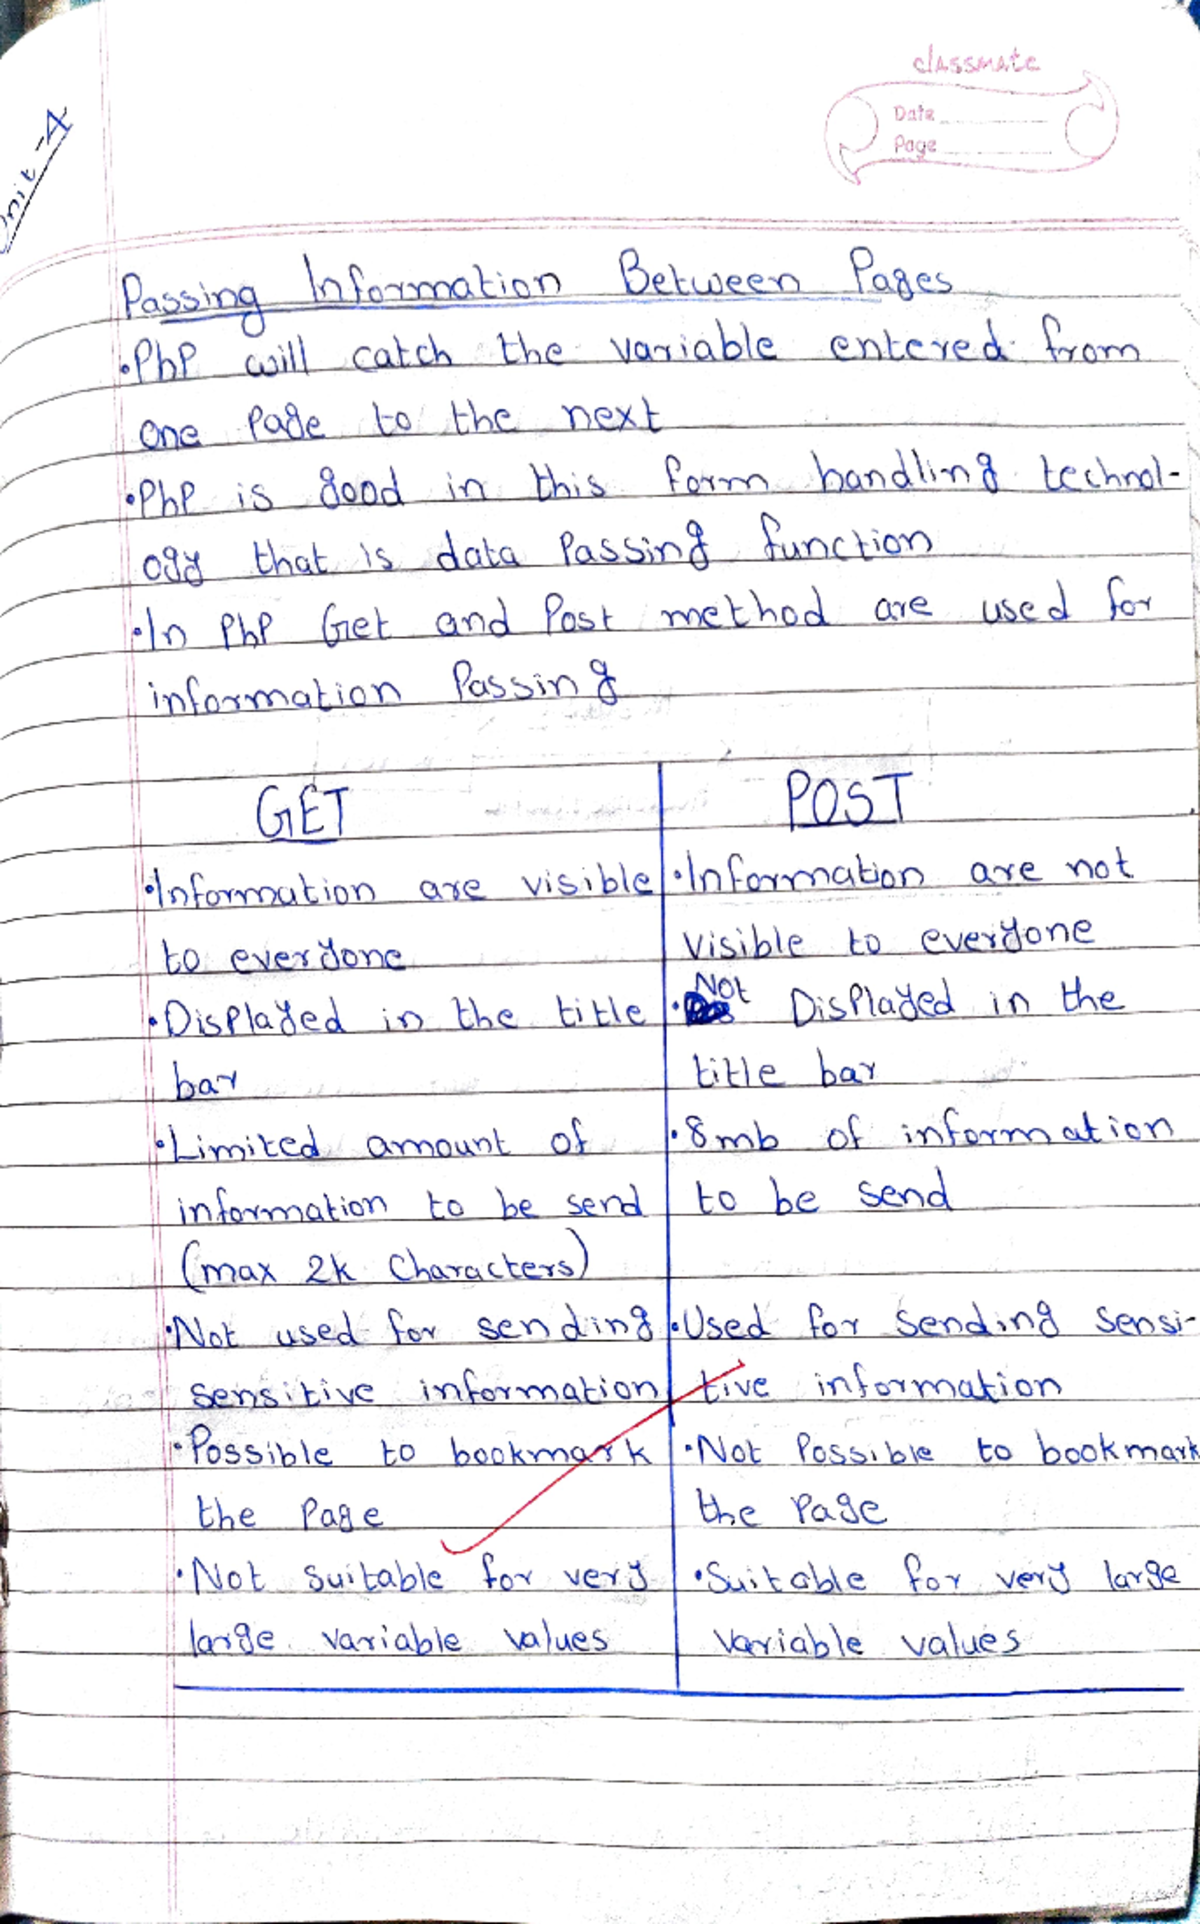 classmate
Date
Page
Unit-4
Passing Information Between Pages
•PhP will catch the variable entered from
one Page to the next
•PhP is good in this form handling technol-
ogy that is data Passing function
•In PhP Get and Post method are used for
information Passing
GET
•Information are visible
to everyone
•Displayed in the title
bar
•Limited amount of
information to be send
(max 2k Characters)
•Not used for sending
sensitive information
•Possible to bookmark
the Page
•Not Suitable for very
large variable values
POST
•Information are not
visible to everyone
•Not Displayed in the
title bar
•8mb of information
to be send
•Used for Sending Sensi-
tive information
•Not Possible to bookmark
the Page
•Suitable for very large
variable values